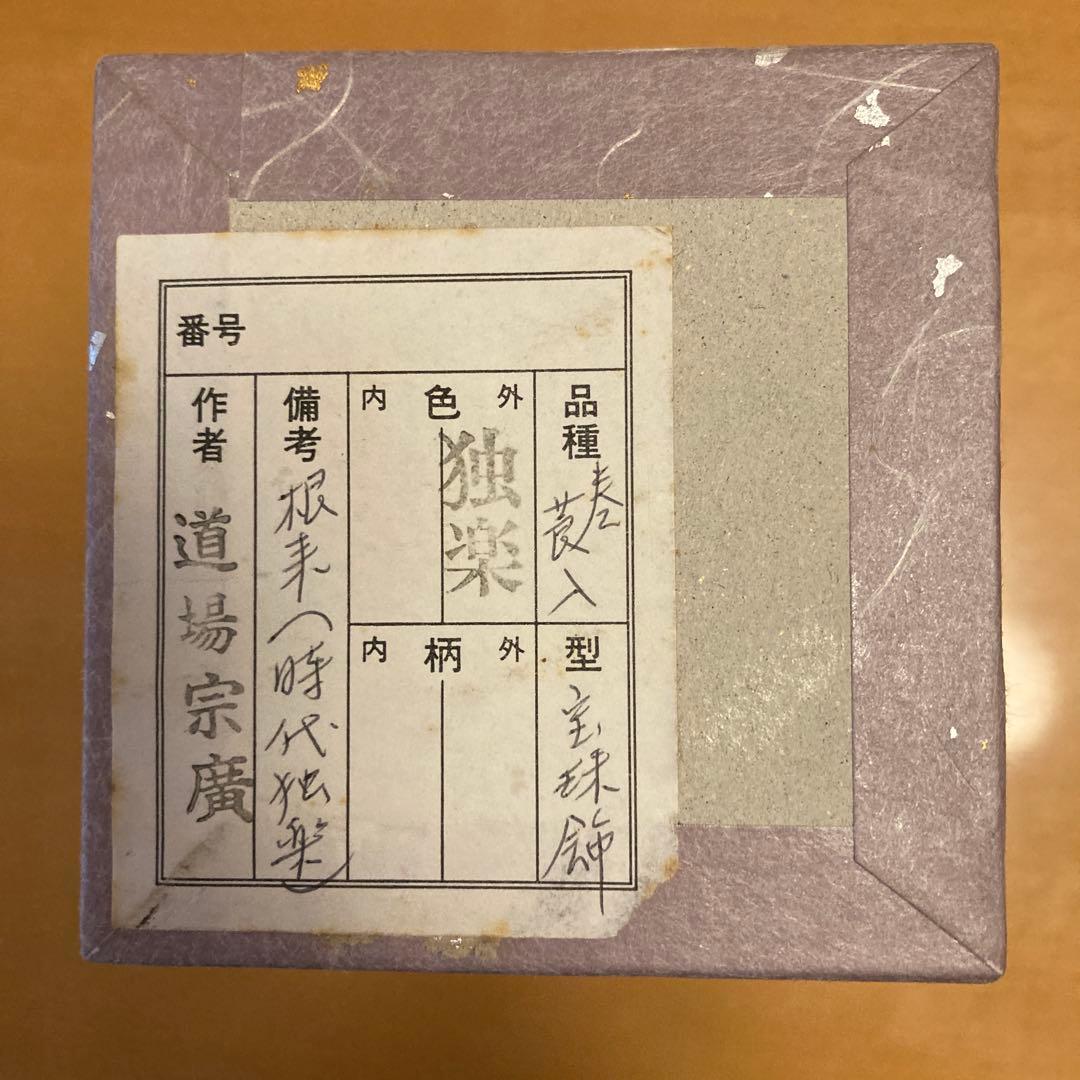 番号
品種
棗
莨入
型
宝珠
飾
外 色 内
独楽
外 柄 内
備考
根来(時代独楽)
作者
道場宗廣